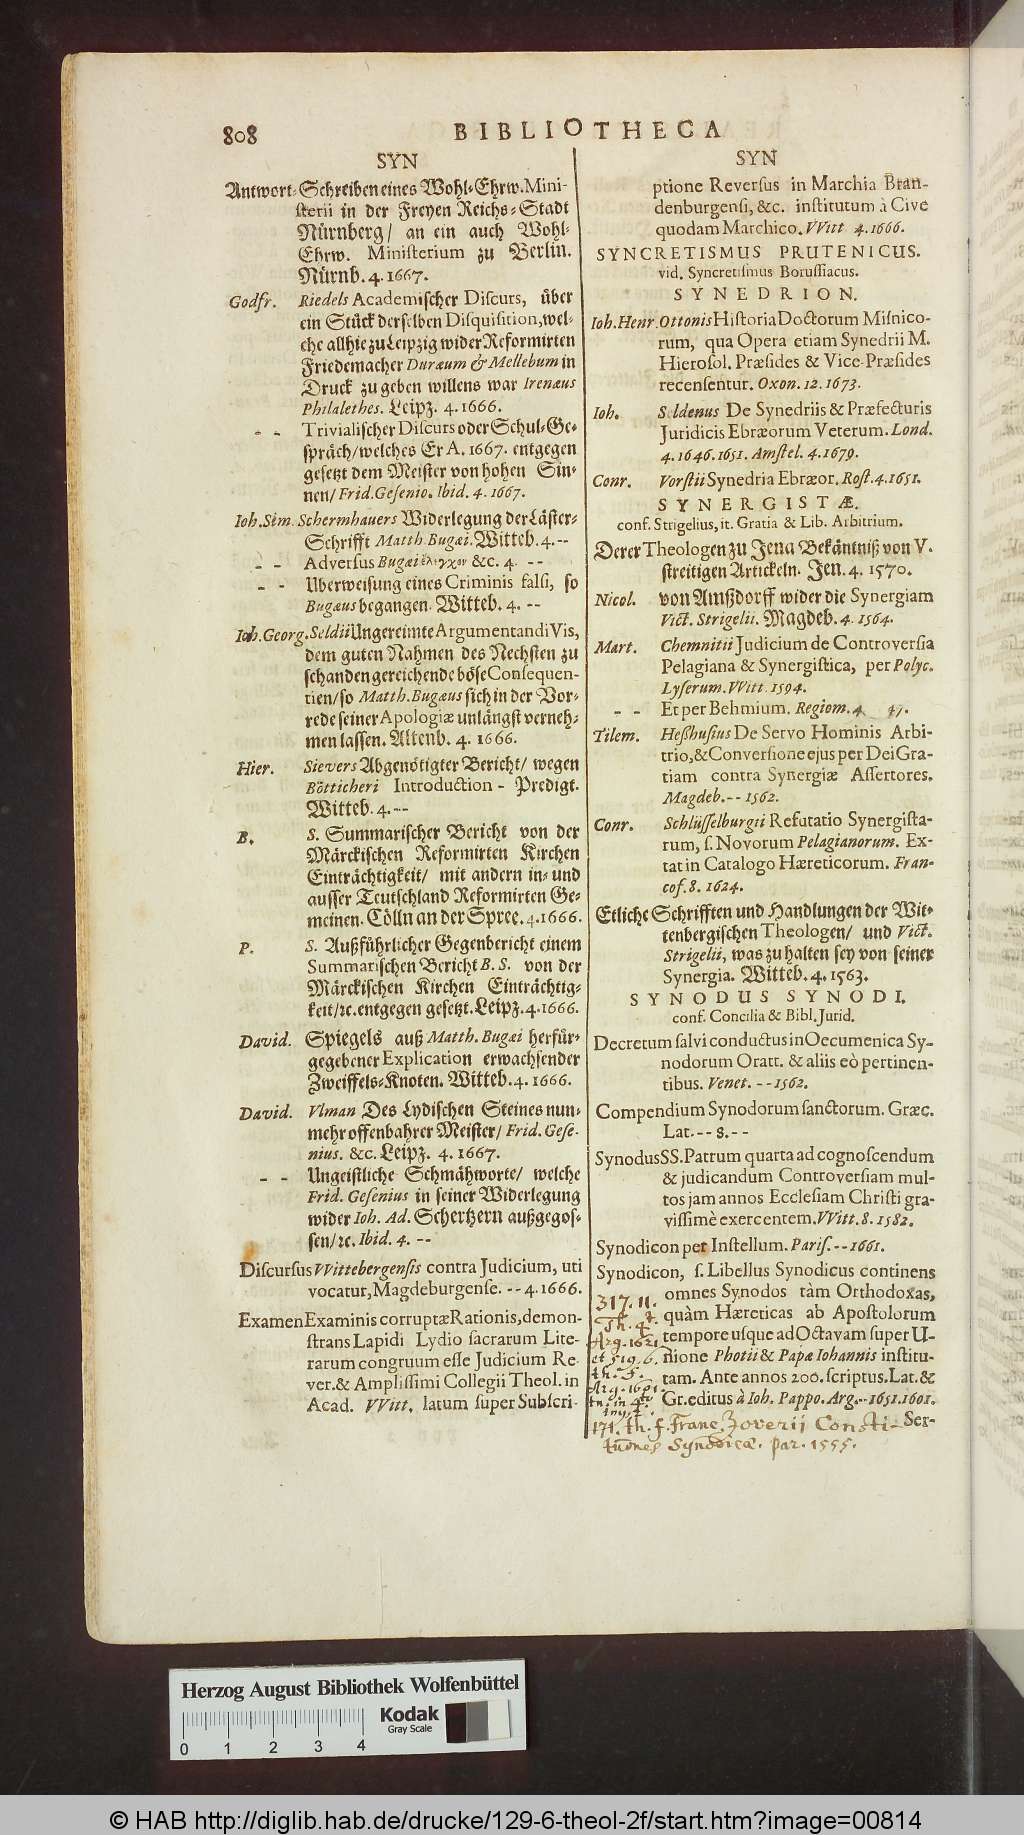 808
BIBLIOTHECA
SYN
Antwort-Schreiben eines Wohl-Ehrw. Mini-
sterii in der Freyen Reichs-Stadt
Nürnberg/ an ein auch Wohl-
Ehrw. Ministerium zu Berlin.
Nürnb. 4. 1667.
Godfr. Riedels Academischer Discurs, über
ein Stück derselben Disquisition, wel-
che allhie zu Leipzig wider Reformirten
Friedemacher Duræum & Mellebum in
Druck zu geben willens war Irenæus
Philalethes. Leipz. 4. 1666.
- - Trivialischer Discurs oder Schul-Ge-
spräch/ welches Er A. 1667. entgegen
gesetzt dem Meister von hohen Sin-
nen/ Frid. Gesenio. Ibid. 4. 1667.
Ioh. Sim. Schermhauers Widerlegung der Läster-
Schrifft Matth. Bugæi. Witteb. 4. --
- - Adversus Bugæi ἔλεγχον &c. 4. --
- - Uberweisung eines Criminis falsi, so
Bugæus begangen. Witteb. 4. --
Ioh. Georg. Seldii Ungereimte Argumentandi Vis,
dem guten Nahmen des Nechsten zu
schanden gereichende böse Consequen-
tien/ so Matth. Bugæus sich in der Vor-
rede seiner Apologiæ unlängst verneh-
men lassen. Altenb. 4. 1666.
Hier. Sievers Abgenötigter Bericht/ wegen
Bötticheri Introduction - Predigt.
Witteb. 4. --
B. S. Summarischer Bericht von der
Märckischen Reformirten Kirchen
Einträchtigkeit/ mit andern in- und
ausser Teutschland Reformirten Ge-
meinen. Cölln an der Spree. 4. 1666.
P. S. Außführlicher Gegenbericht einem
Summarischen Bericht B. S. von der
Märckischen Kirchen Einträchtig-
keit/ ꝛc. entgegen gesetzt. Leipz. 4. 1666.
David. Spiegels auß Matth. Bugæi herfür-
gegebener Explication erwachsender
Zweiffels-Knoten. Witteb. 4. 1666.
David. Vlman Des Lydischen Steines nun-
mehr offenbahrer Meister/ Frid. Gese-
nius. &c. Leipz. 4. 1667.
- - Ungeistliche Schmähworte/ welche
Frid. Gesenius in seiner Widerlegung
wider Ioh. Ad. Schertzern außgegos-
sen/ ꝛc. Ibid. 4. --
Discursus Wittebergensis contra Judicium, uti
vocatur, Magdeburgense. -- 4. 1666.
Examen Examinis corruptæ Rationis, demon-
strans Lapidi Lydio sacrarum Lite-
rarum congruum esse Judicium Re-
ver. & Amplissimi Collegii Theol. in
Acad. VVitt. latum super Subscri-
SYN
ptione Reversus in Marchia Bran-
denburgensi, &c. institutum à Cive
quodam Marchico. VVitt 4. 1666.
SYNCRETISMUS PRUTENICUS.
vid. Syncretismus Borussiacus.
SYNEDRION.
Ioh. Henr. Ottonis Historia Doctorum Misnico-
rum, qua Opera etiam Synedrii M.
Hierosol. Præsides & Vice-Præsides
recensentur. Oxon. 12. 1673.
Ioh. Seldenus De Synedriis & Præfecturis
Juridicis Ebræorum Veterum. Lond.
4. 1646. 1651. Amstel. 4. 1679.
Conr. Vorstii Synedria Ebræor. Rost. 4. 1651.
SYNERGISTÆ.
conf. Strigelius, it. Gratia & Lib. Arbitrium.
Derer Theologen zu Jena Bekäntniß von V.
streitigen Artickeln. Jen. 4. 1570.
Nicol. von Amßdorff wider die Synergiam
Vict. Strigelii. Magdeb. 4. 1564.
Mart. Chemnitii Judicium de Controversia
Pelagiana & Synergistica, per Polyc.
Lyserum. VVitt. 1594.
- - Et per Behmium. Regiom. 4 47.
Tilem. Heßhusius De Servo Hominis Arbi-
trio, & Conversione ejus per Dei Gra-
tiam contra Synergiæ Assertores.
Magdeb. -- 1562.
Conr. Schlüsselburgii Refutatio Synergista-
rum, s. Novorum Pelagianorum. Ex-
tat in Catalogo Hæreticorum. Fran-
cof. 8. 1624.
Etliche Schrifften und Handlungen der Wit-
tenbergischen Theologen/ und Vict.
Strigelii, was zu halten sey von seiner
Synergia. Witteb. 4. 1563.
SYNODUS SYNODI.
conf. Concilia & Bibl. Jurid.
Decretum salvi conductus in Oecumenica Sy-
nodorum Oratt. & aliis eò pertinen-
tibus. Venet. -- 1562.
Compendium Synodorum sanctorum. Græc.
Lat. -- 8. --
Synodus SS. Patrum quarta ad cognoscendum
& judicandum Controversiam mul-
tos jam annos Ecclesiam Christi gra-
vissimè exercentem. VVitt. 8. 1582.
Synodicon per Instellum. Paris. -- 1661.
Synodicon, s. Libellus Synodicus continens
omnes Synodos tàm Orthodoxas,
quàm Hæreticas ab Apostolorum
tempore usque ad Octavam super U-
nione Photii & Papæ Iohannis institu-
tam. Ante annos 200. scriptus. Lat. &
Gr. editus à Ioh. Pappo. Arg. -- 1651. 1601.
317. 11.
Th. 4t.
Arg. 1621
et 519. 6.
th. f.
Arg. 1601.
in 4t.
171. th. f. Franc. Zoverii Consti-
tutiones Synodicæ. par. 1555.
Ser-
Herzog August Bibliothek Wolfenbüttel
Kodak
Gray Scale
0 1 2 3 4
© HAB http://diglib.hab.de/drucke/129-6-theol-2f/start.htm?image=00814